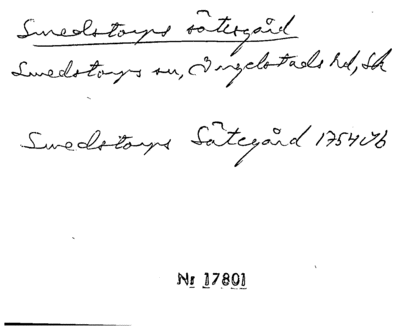 Smedstorps sätesgård
Smedstorps sn, Ingelstads hd, Sk
Smedstorps Sätegård 1754 Jb
Nr 17801